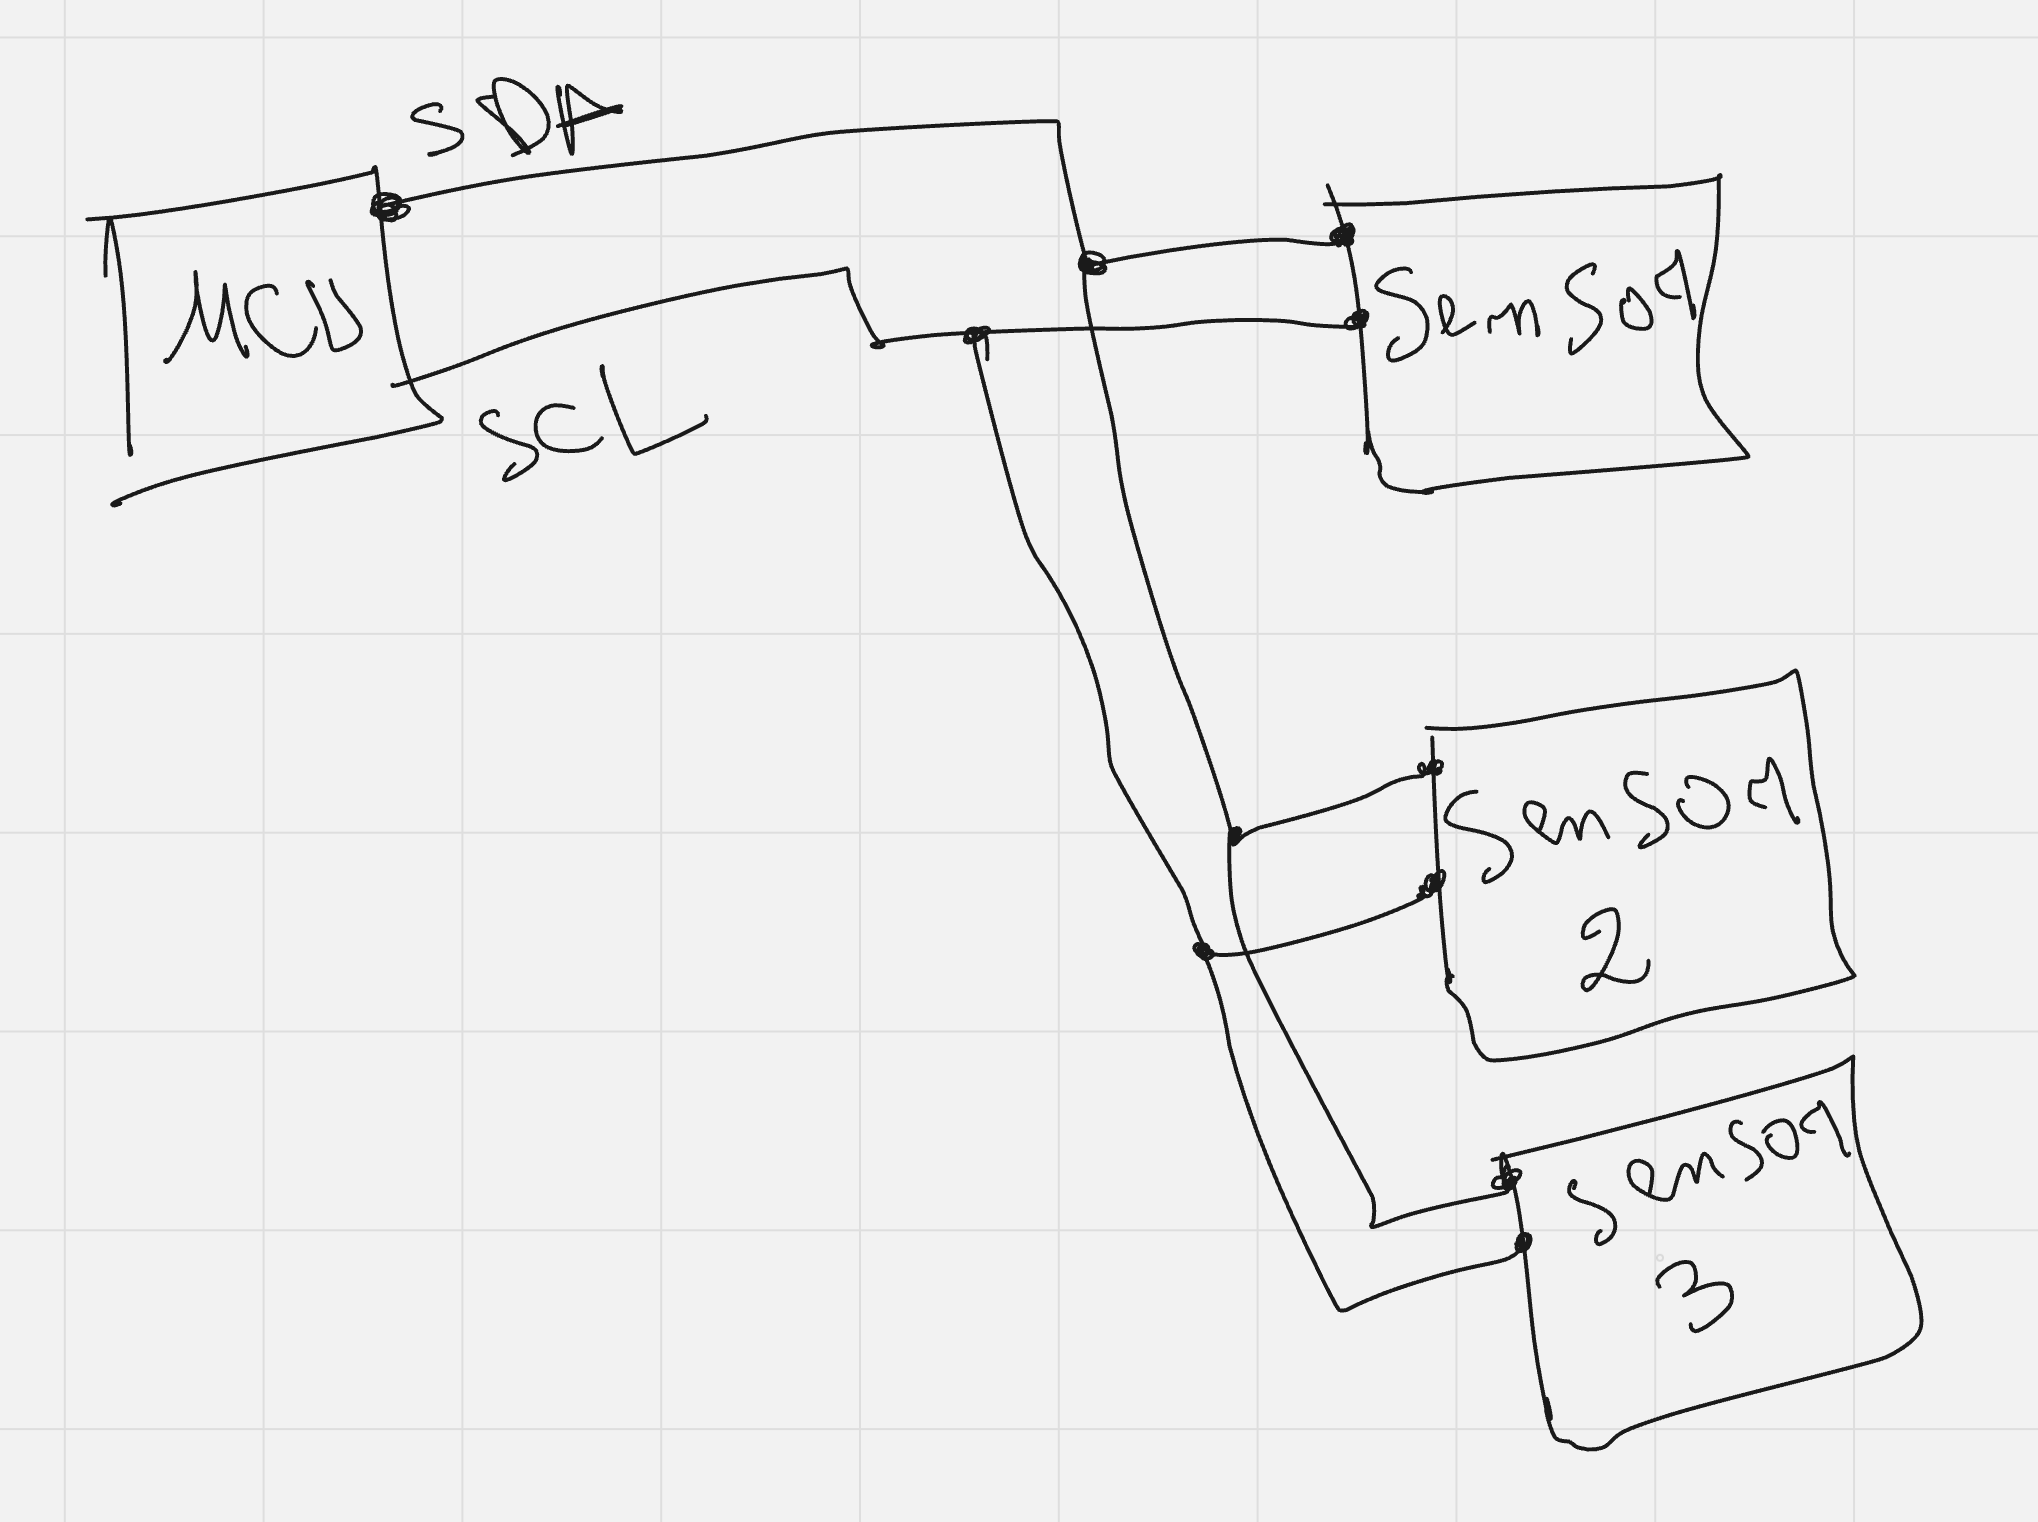 SDA
MCU
SCL
Sensor
Sensor
2
Sensor
3